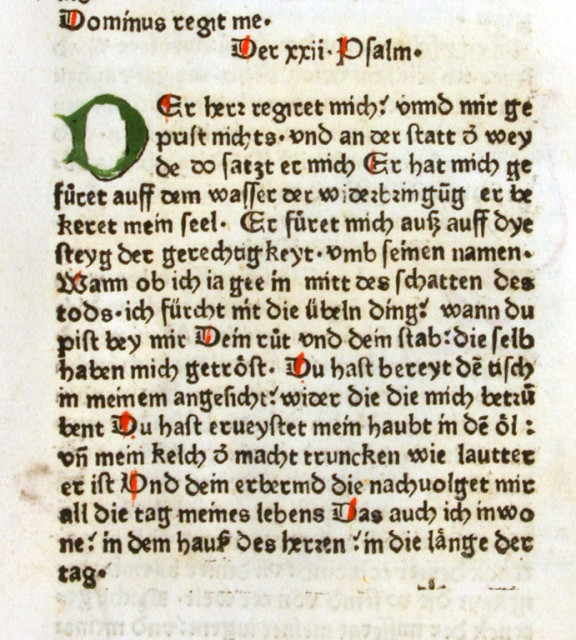 Dominus regit me.
Der xxii. Psalm.
DEr herr regiret mich: vnnd mir ge
prist nichts. vnd an der statt d̄ wey
de do satzt er mich Er hat mich ge
füret auff dem wasser der widerbringūg er be
keret mein seel. Er füret mich auß auff dye
steyg der gerechtigkeyt. vmb seinen namen.
Wann ob ich ia gee in mitt des schatten des
tods. ich fürcht nit die übeln ding: wann du
pist bey mir Dein růt vnd dein stab: die selb
haben mich getröst. Du hast bereyt dē tisch
in meinem angesicht: wider die die mich betrü
bent Du hast erueystet mein haubt in dē öl:
vn̄ mein kelch d̄ macht truncken wie lautter
er ist Vnd dein erbermd die nachuolget mir
all die tag meines lebens Das auch ich inwo
ne: in dem hauß des herren: in die långe der
tag.